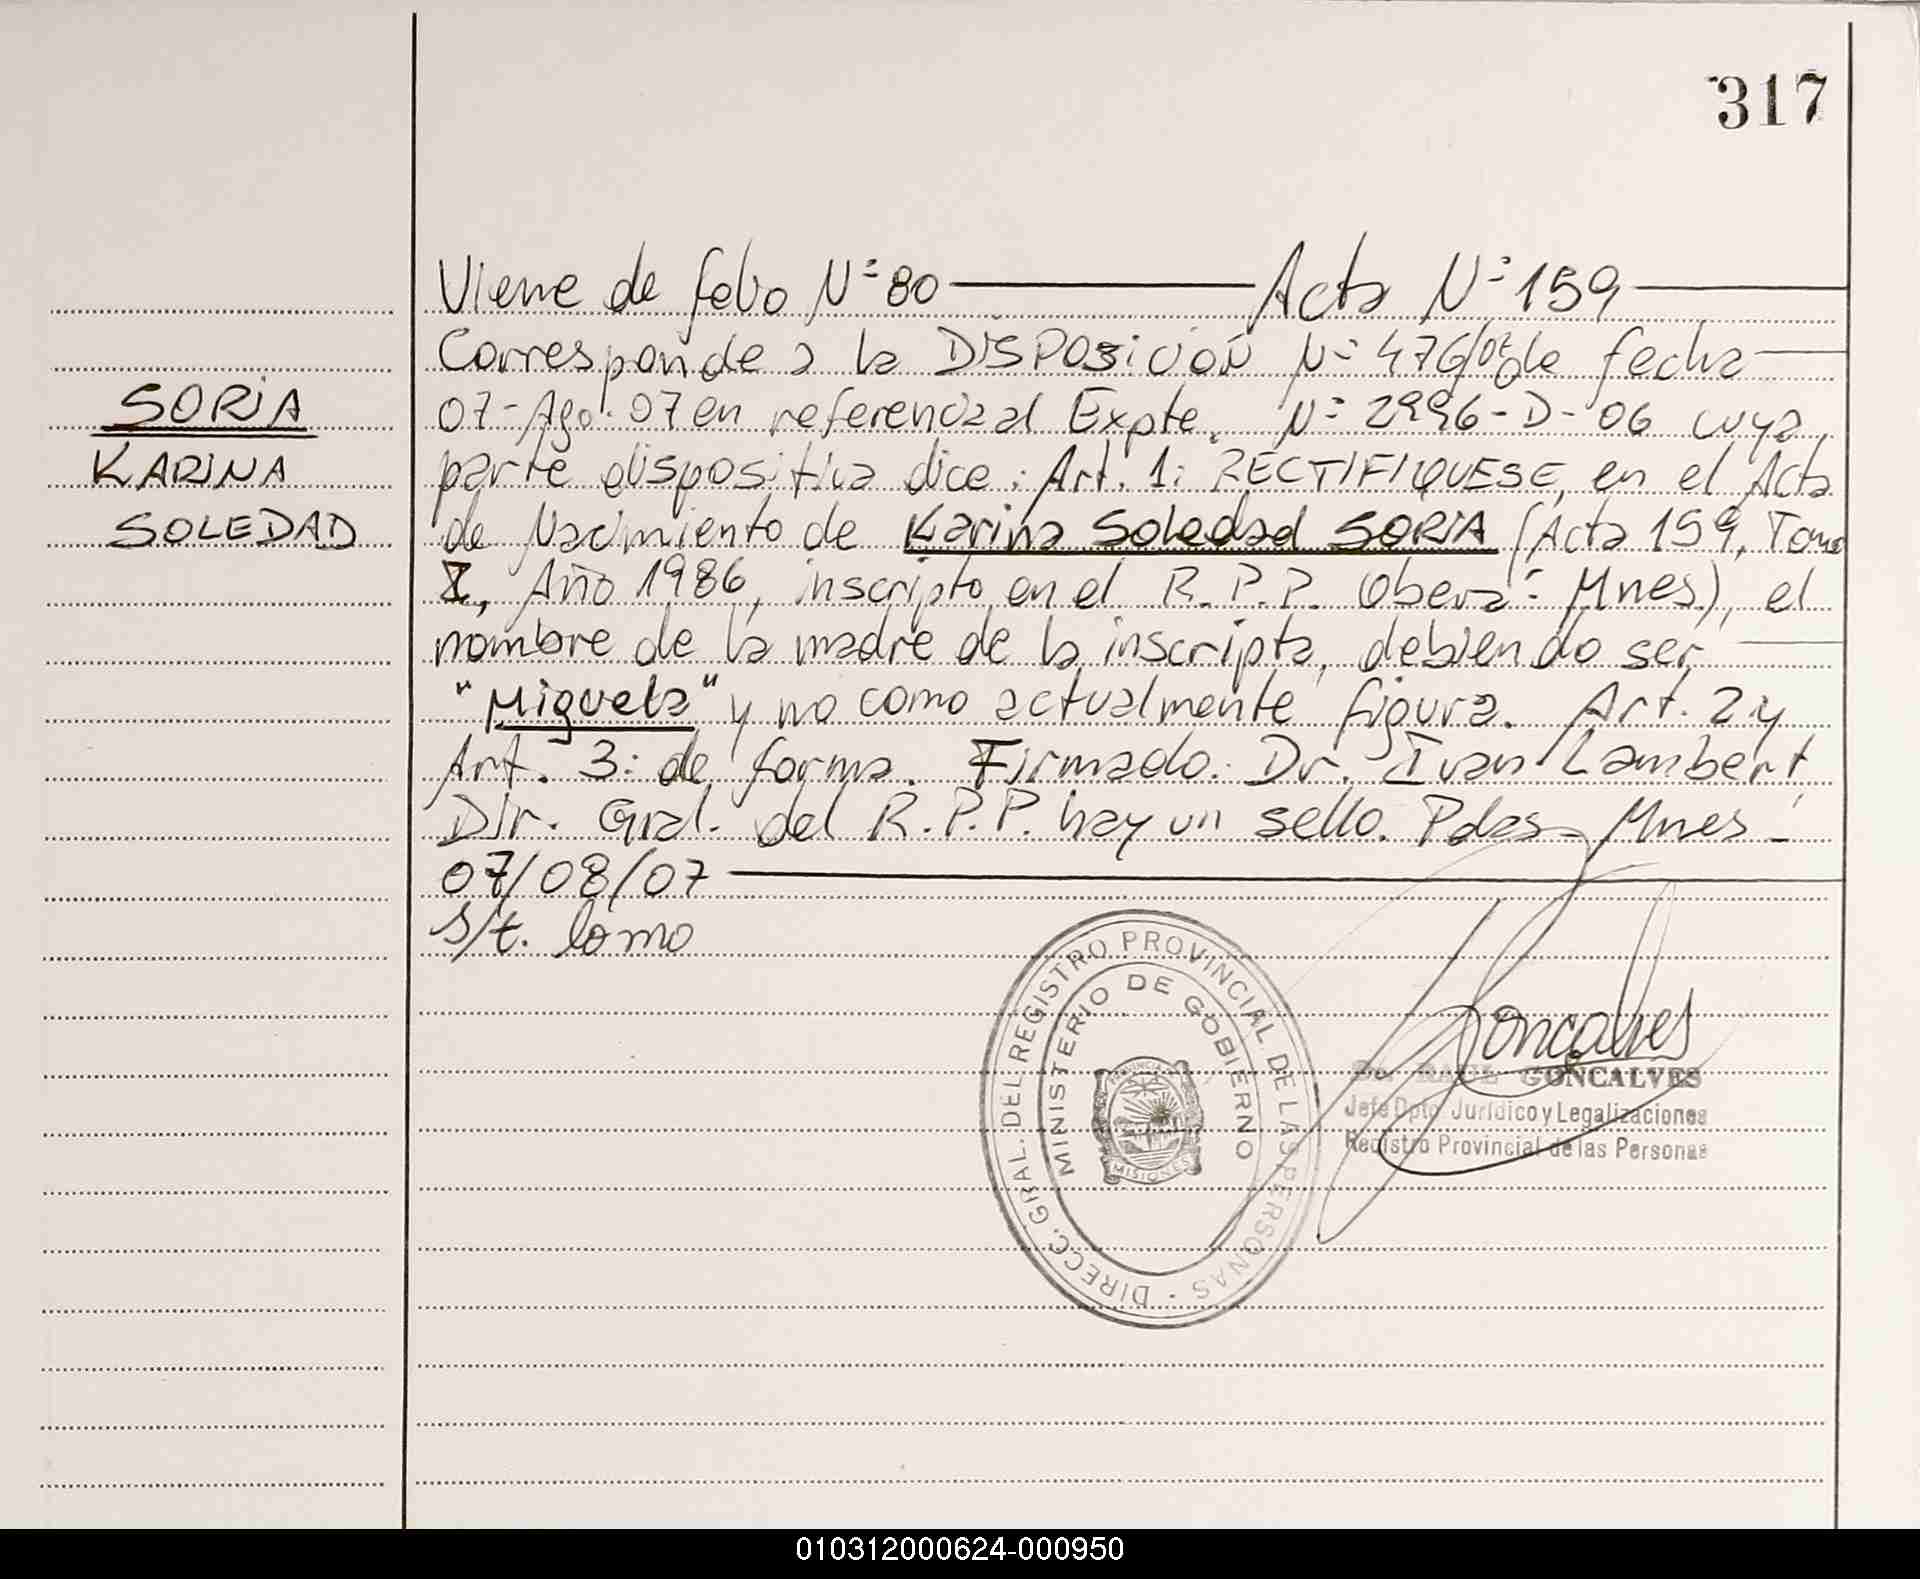 317
SORIA
KARINA
SOLEDAD
Viene de folio N° 80 Acta N° 159
Corresponde a la DISPOSICIÓN N° 476/07 de fecha
07-Ago-07 en referencia al Expte. N° 2996-D-06 cuya
parte dispositiva dice: Art. 1: RECTIFIQUESE, en el Acta
de Nacimiento de Karina Soledad SORIA (Acta 159, Tomo
I, Año 1986, inscripto en el R.P.P. Oberá-Mnes), el
nombre de la madre de la inscripta, debiendo ser
"Miguela" y no como actualmente figura. Art. 2 y
Art. 3: de forma. Firmado: Dr. Ivan Lambert
Dir. Gral. del R.P.P. hay un sello. Pdas - Mnes -
07/08/07
s/t. lomo
DIRECC. GRAL. DEL REGISTRO PROVINCIAL DE LAS PERSONAS -
MINISTERIO DE GOBIERNO
PROVINCIA
MISIONES
Gonçalves
Dr. RAUL GONCALVES
Jefe Dpto. Jurídico y Legalizaciones
Registro Provincial de las Personas
010312000624-000950